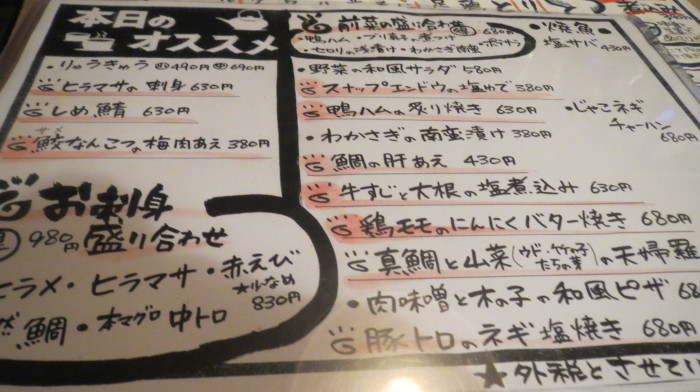 本日の
オススメ
・りゅうきゅう 490円 690円
ヒラマサの刺身 630円
しめ鯖 630円
鮫なんこつの梅肉あえ 380円
お刺身
980円 盛り合わせ
ヒラメ・ヒラマサ・赤えび
★少なめ
830円
鯛・本マグロ中トロ
前菜の盛り合わせ 680円
・セロリの浅漬け・わかさぎ南蛮・ポテサラ
・野菜の和風サラダ 580円
スナップエンドウの塩ゆで 380円
鴨ハムの炙り焼き 630円
・わかさぎの南蛮漬け 380円
鯛の肝あえ 430円
牛すじと大根の塩煮込み 630円
鶏モモのにんにくバター焼き 680円
真鯛と山菜(ウド・竹の子 たらの芽)の天婦羅
・肉味噌と木の子の和風ピザ 68
豚トロのネギ塩焼き 680円
・焼魚・
塩サバ 430円
・じゃこネギ
チャーハン
680円
★外税とさせてい